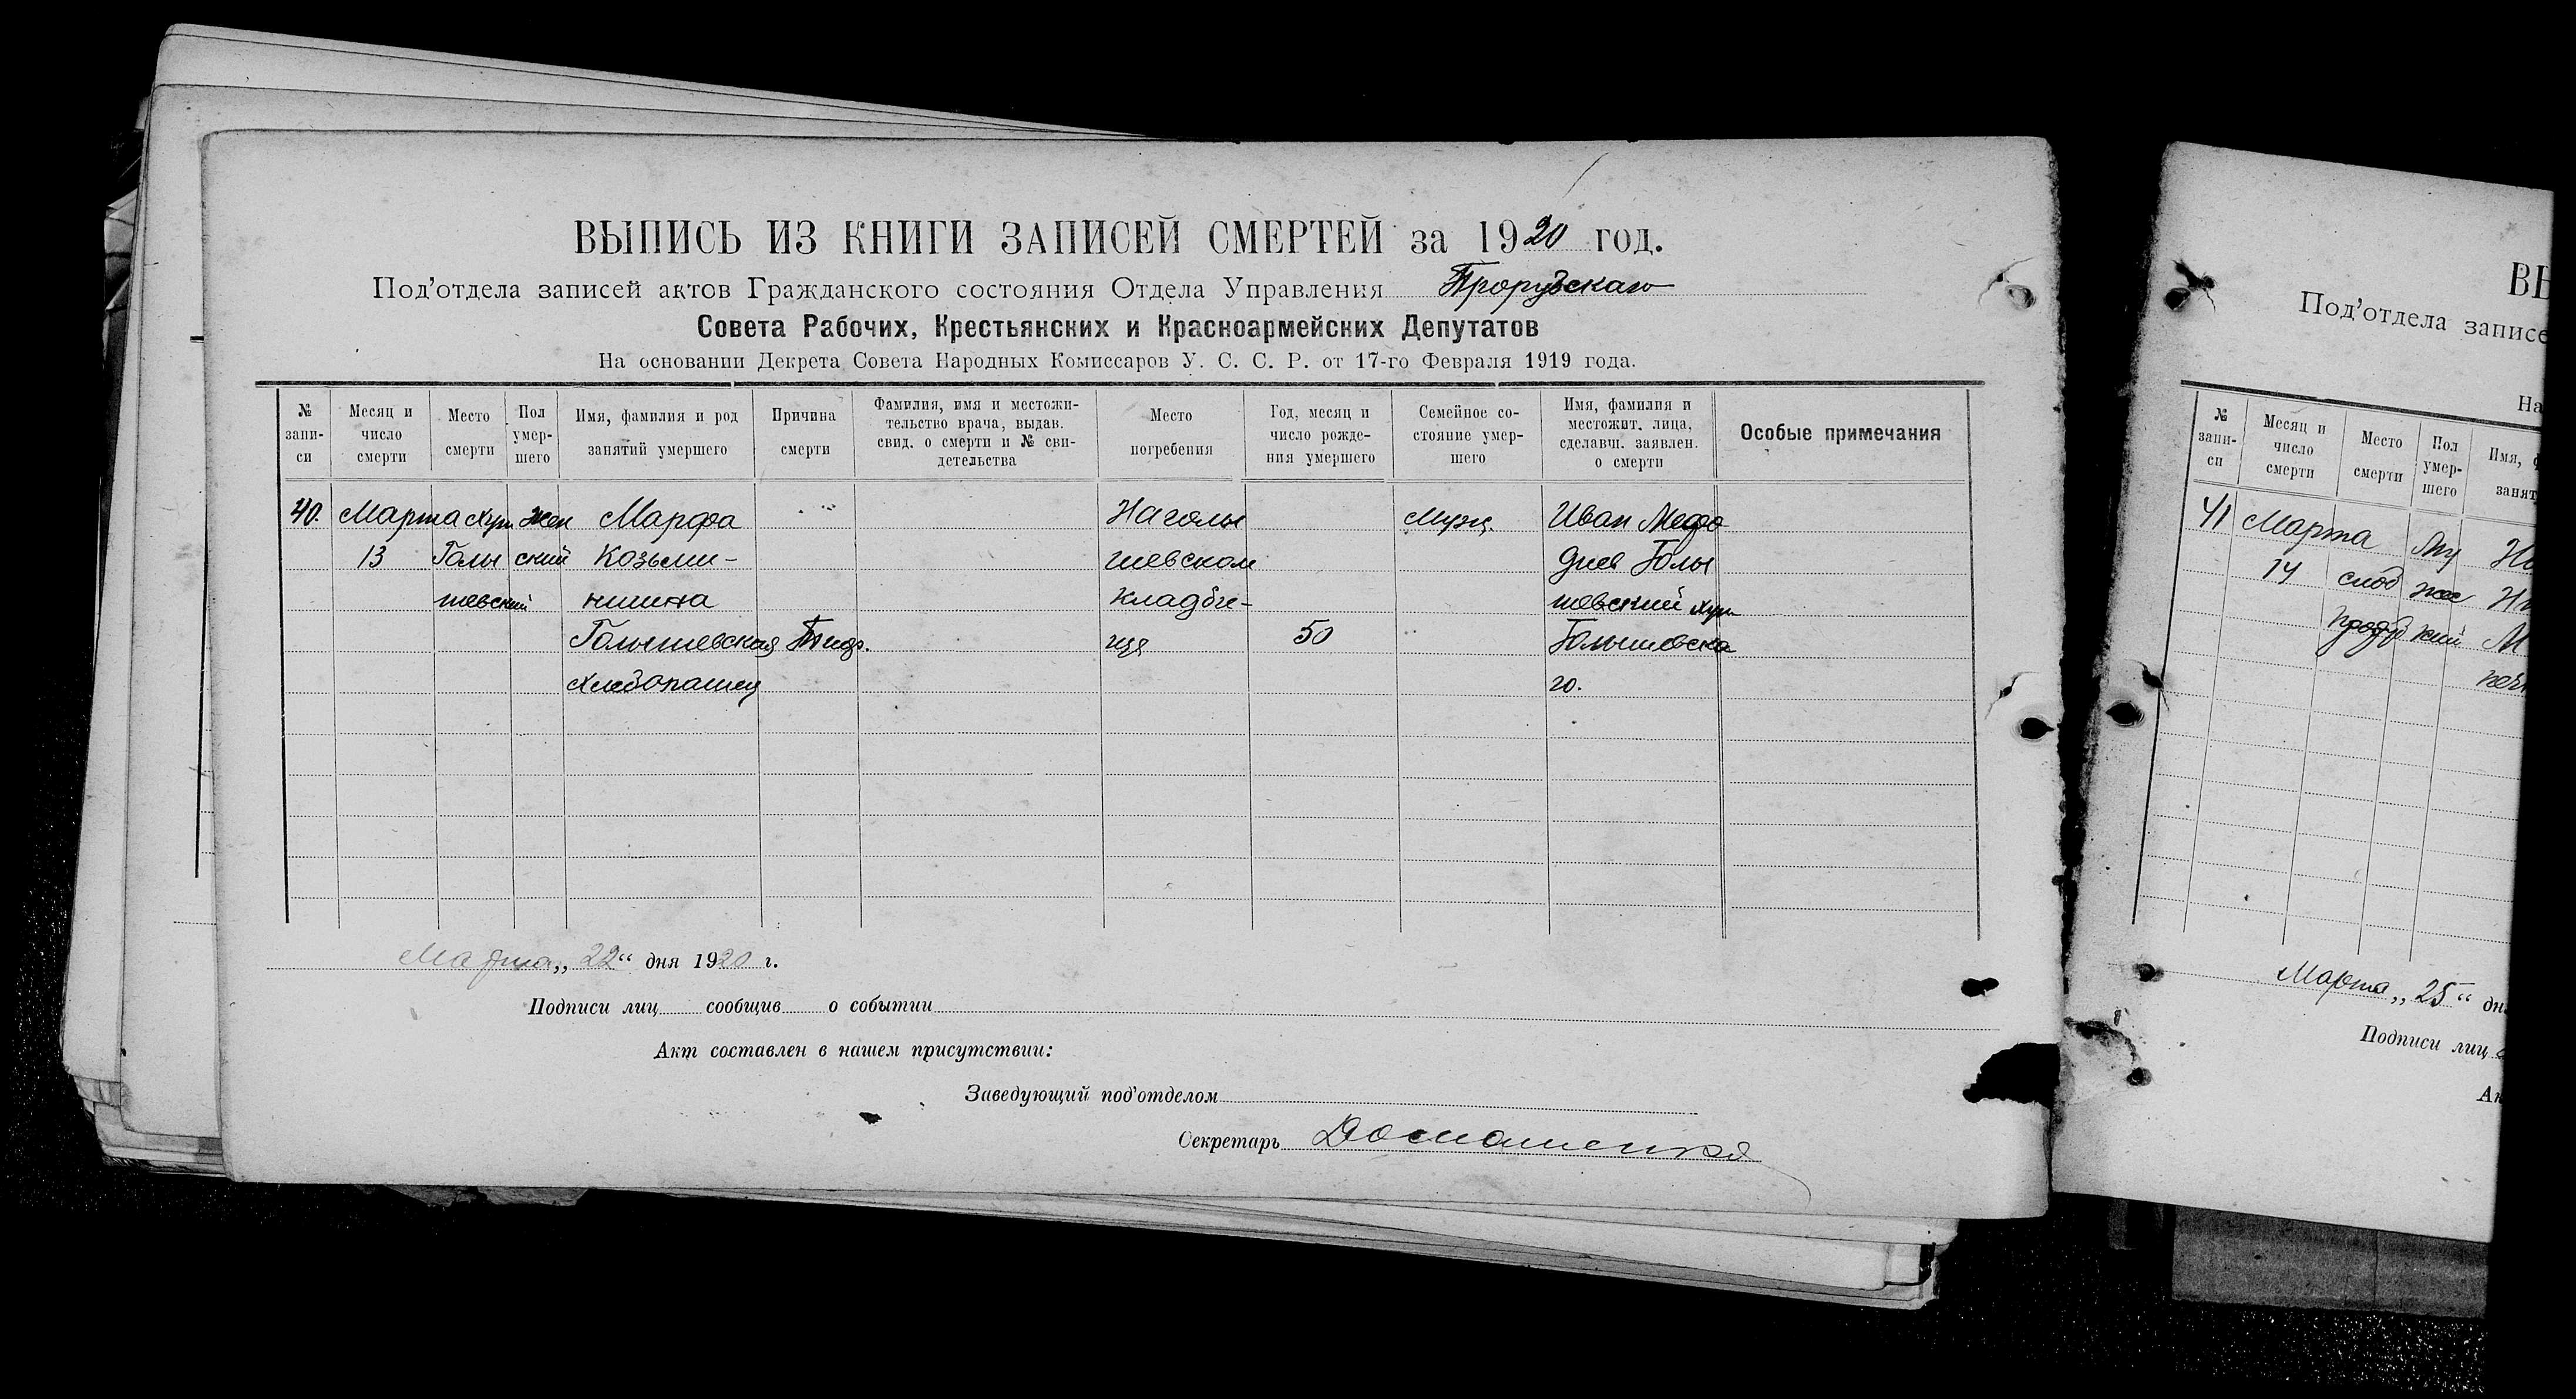 ВЫПИСЬ ИЗ КНИГИ ЗАПИСЕЙ СМЕРТЕЙ за 1920 год.
Под'отдела записей актов Гражданского состояния Отдела Управления Прорубскаго
Совета Рабочих, Крестьянских и Красноармейских Депутатов
На основании Декрета Совета Народных Комиссаров У. С. С. Р. от 17-го Февраля 1919 года.
№ записи
Месяц и число смерти
Место смерти
Пол умершего
Имя, фамилия и род занятий умершего
Причина смерти
Фамилия, имя и местожительство врача, выдав. свид. о смерти и № свидетельства
Место погребения
Год, месяц и число рождения умершего
Семейное состояние умершего
Имя, фамилия и местожит. лица, сделавш. заявлен. о смерти
Особые примечания
40. Марта Хут. жен Марфа На голы Муж. Иван Мефо
13 Голы ский Козьми- шевском диев Голы
шевский нишна кладби- шевский хут.
Голышевская Тиф. ще 50 Голышевска
хлебопашец го.
Марта „22“ дня 1920 г.
Подписи лиц сообщив о событии
Акт составлен в нашем присутствии:
Заведующий под'отделом
Секретарь
ВЫ
Под'отдела записе
На
№ записи
Месяц и число смерти
Место смерти
Пол умершего
Имя, ф
занят
41 Марта Му
14 слоб жес
жкий М
Марта „25“ дн
Подписи лиц
Ак